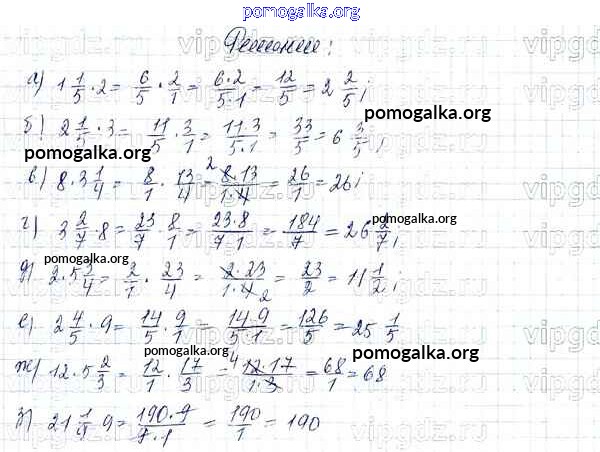 pomogalka.org
Решение:
а) 1 1/5 · 2 = 6/5 · 2/1 = 6·2/5·1 = 12/5 = 2 2/5;
pomogalka.org
б) 2 1/5 · 3 = 11/5 · 3/1 = 11·3/5·1 = 33/5 = 6 3/5;
pomogalka.org
в) 8 · 3 1/4 = 8/1 · 13/4 = 2 8·13/1·4 = 26/1 = 26;
pomogalka.org
г) 3 2/7 · 8 = 23/7 · 8/1 = 23·8/7·1 = 184/7 = 26 2/7;
pomogalka.org
д) 2 · 5 3/4 = 2/1 · 23/4 = 2·23/1·4 2 = 23/2 = 11 1/2;
е) 2 4/5 · 9 = 14/5 · 9/1 = 14·9/5·1 = 126/5 = 25 1/5
pomogalka.org
pomogalka.org
ж) 12 · 5 2/3 = 12/1 · 17/3 = 4 12·17/1·3 = 68/1 = 68
pomogalka.org
з) 21 1/9 · 9 = 190·9/9·1 = 190/1 = 190
vipgdz.ru